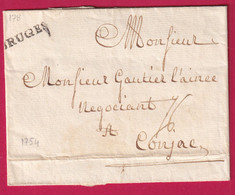 BRUGES
Monsieur
Monsieur Gautier l'ainée
Negociant
A
Conjac
1754